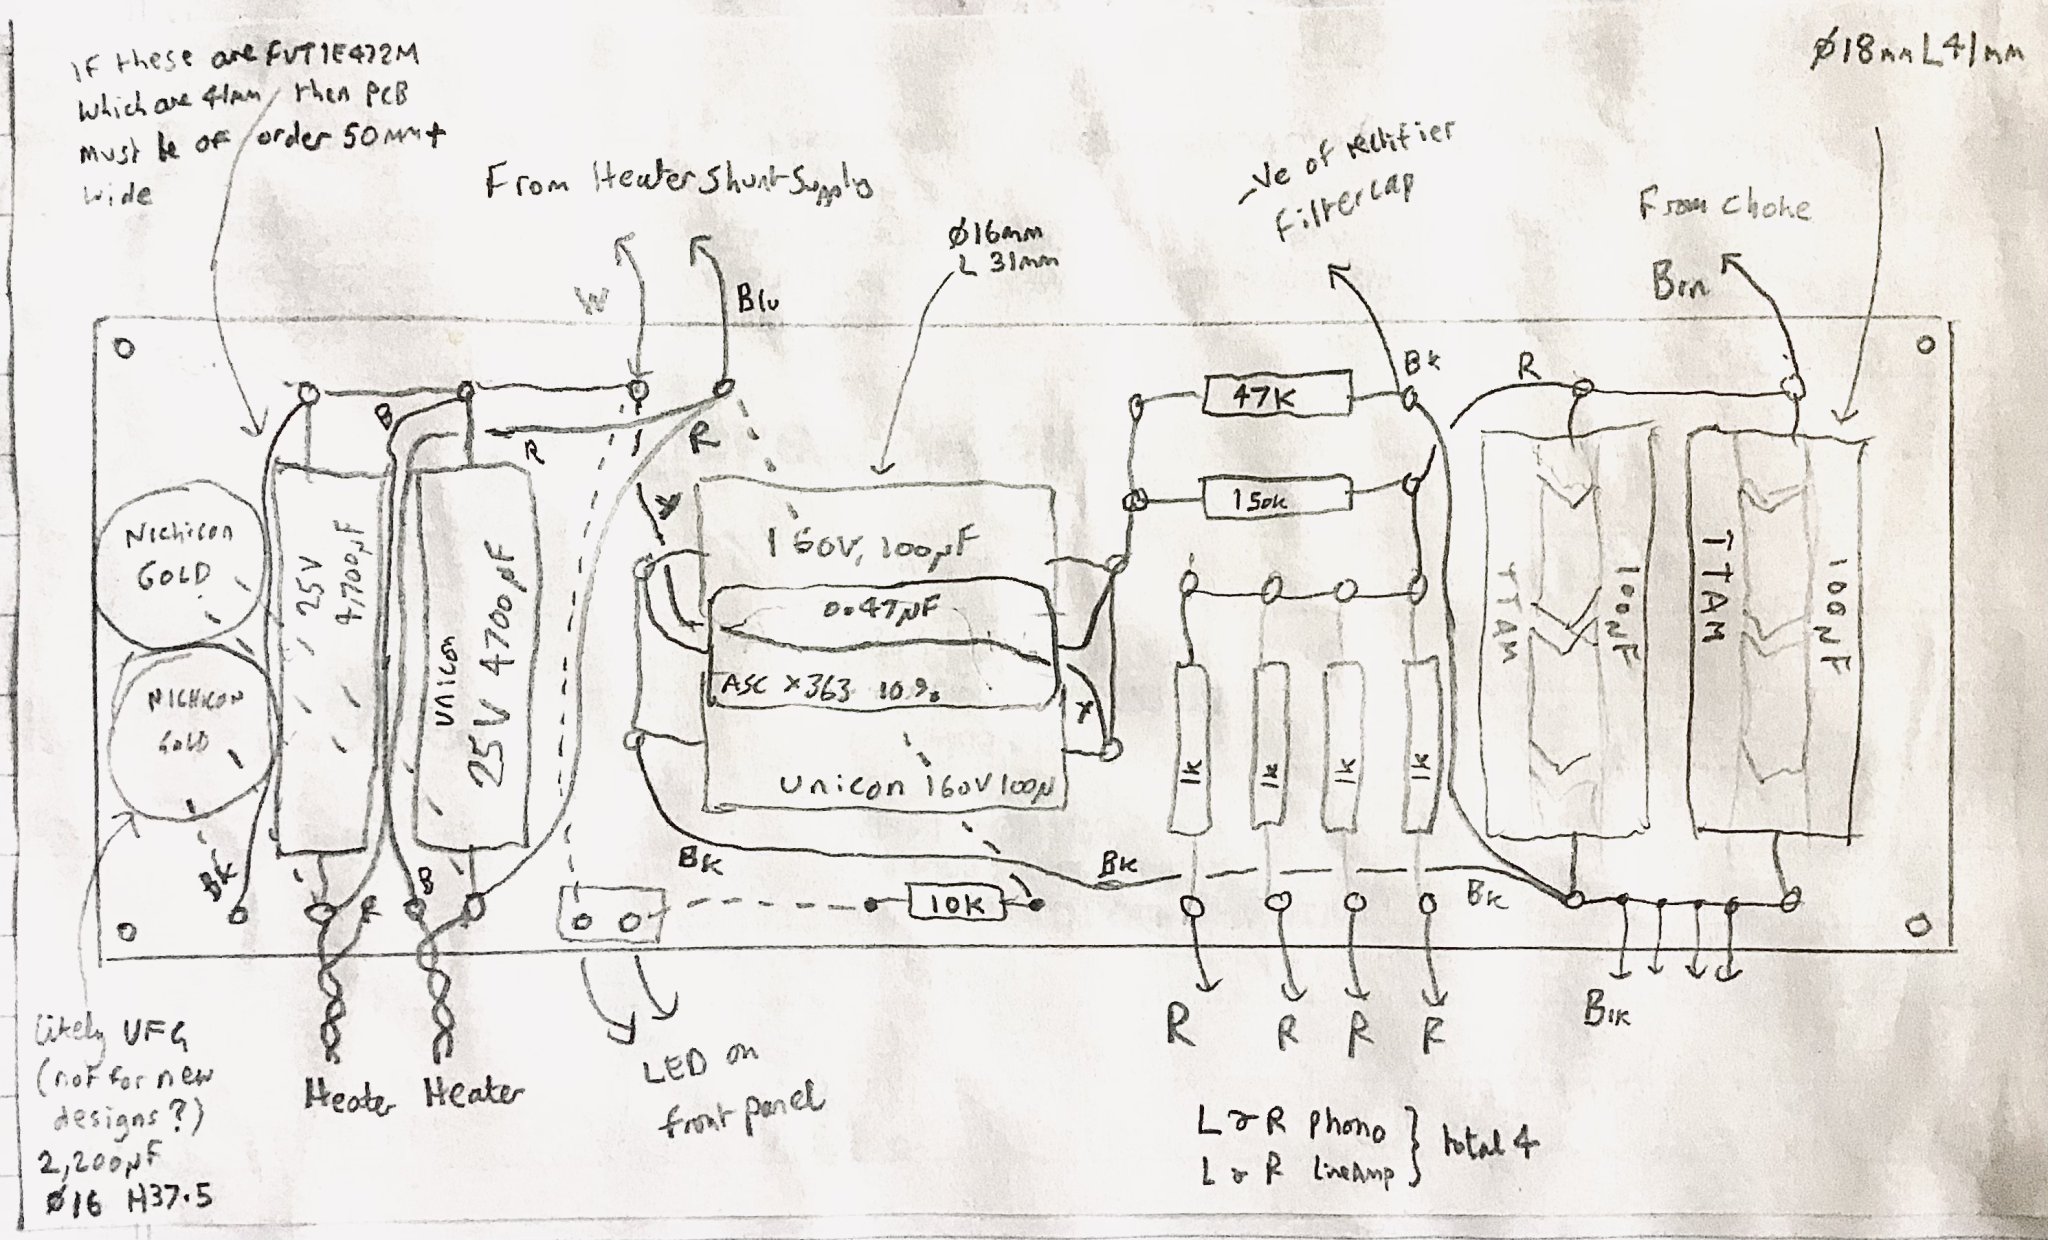 If these are FVT1E472M
which are 41mm, then PCB
must be of order 50mm+
wide
From Heater Shunt Supply
Ø16mm
L 31mm
-Ve of rectifier
Filter cap
From Choke
Brn
Ø18mm L41mm
W
Blu
B
R
R
Bk
R
47K
150K
Y
Nichicon
GOLD
NICHICON
GOLD
25V
4,700µF
Unicon
25V 4700µF
160V, 100µF
0.47µF
ASC X363 10%
Unicon 160V 100µ
Y
1K
1K
1K
1K
TTAM
100µF
TTAM
100µF
Bk
R
B
Bk
Bk
Bk
10K
Heater
Heater
LED on
front panel
R
R
R
R
Blk
L & R Phono
L & R LineAmp
total 4
likely UFG
(not for new
designs?)
2,200µF
Ø16 H37.5